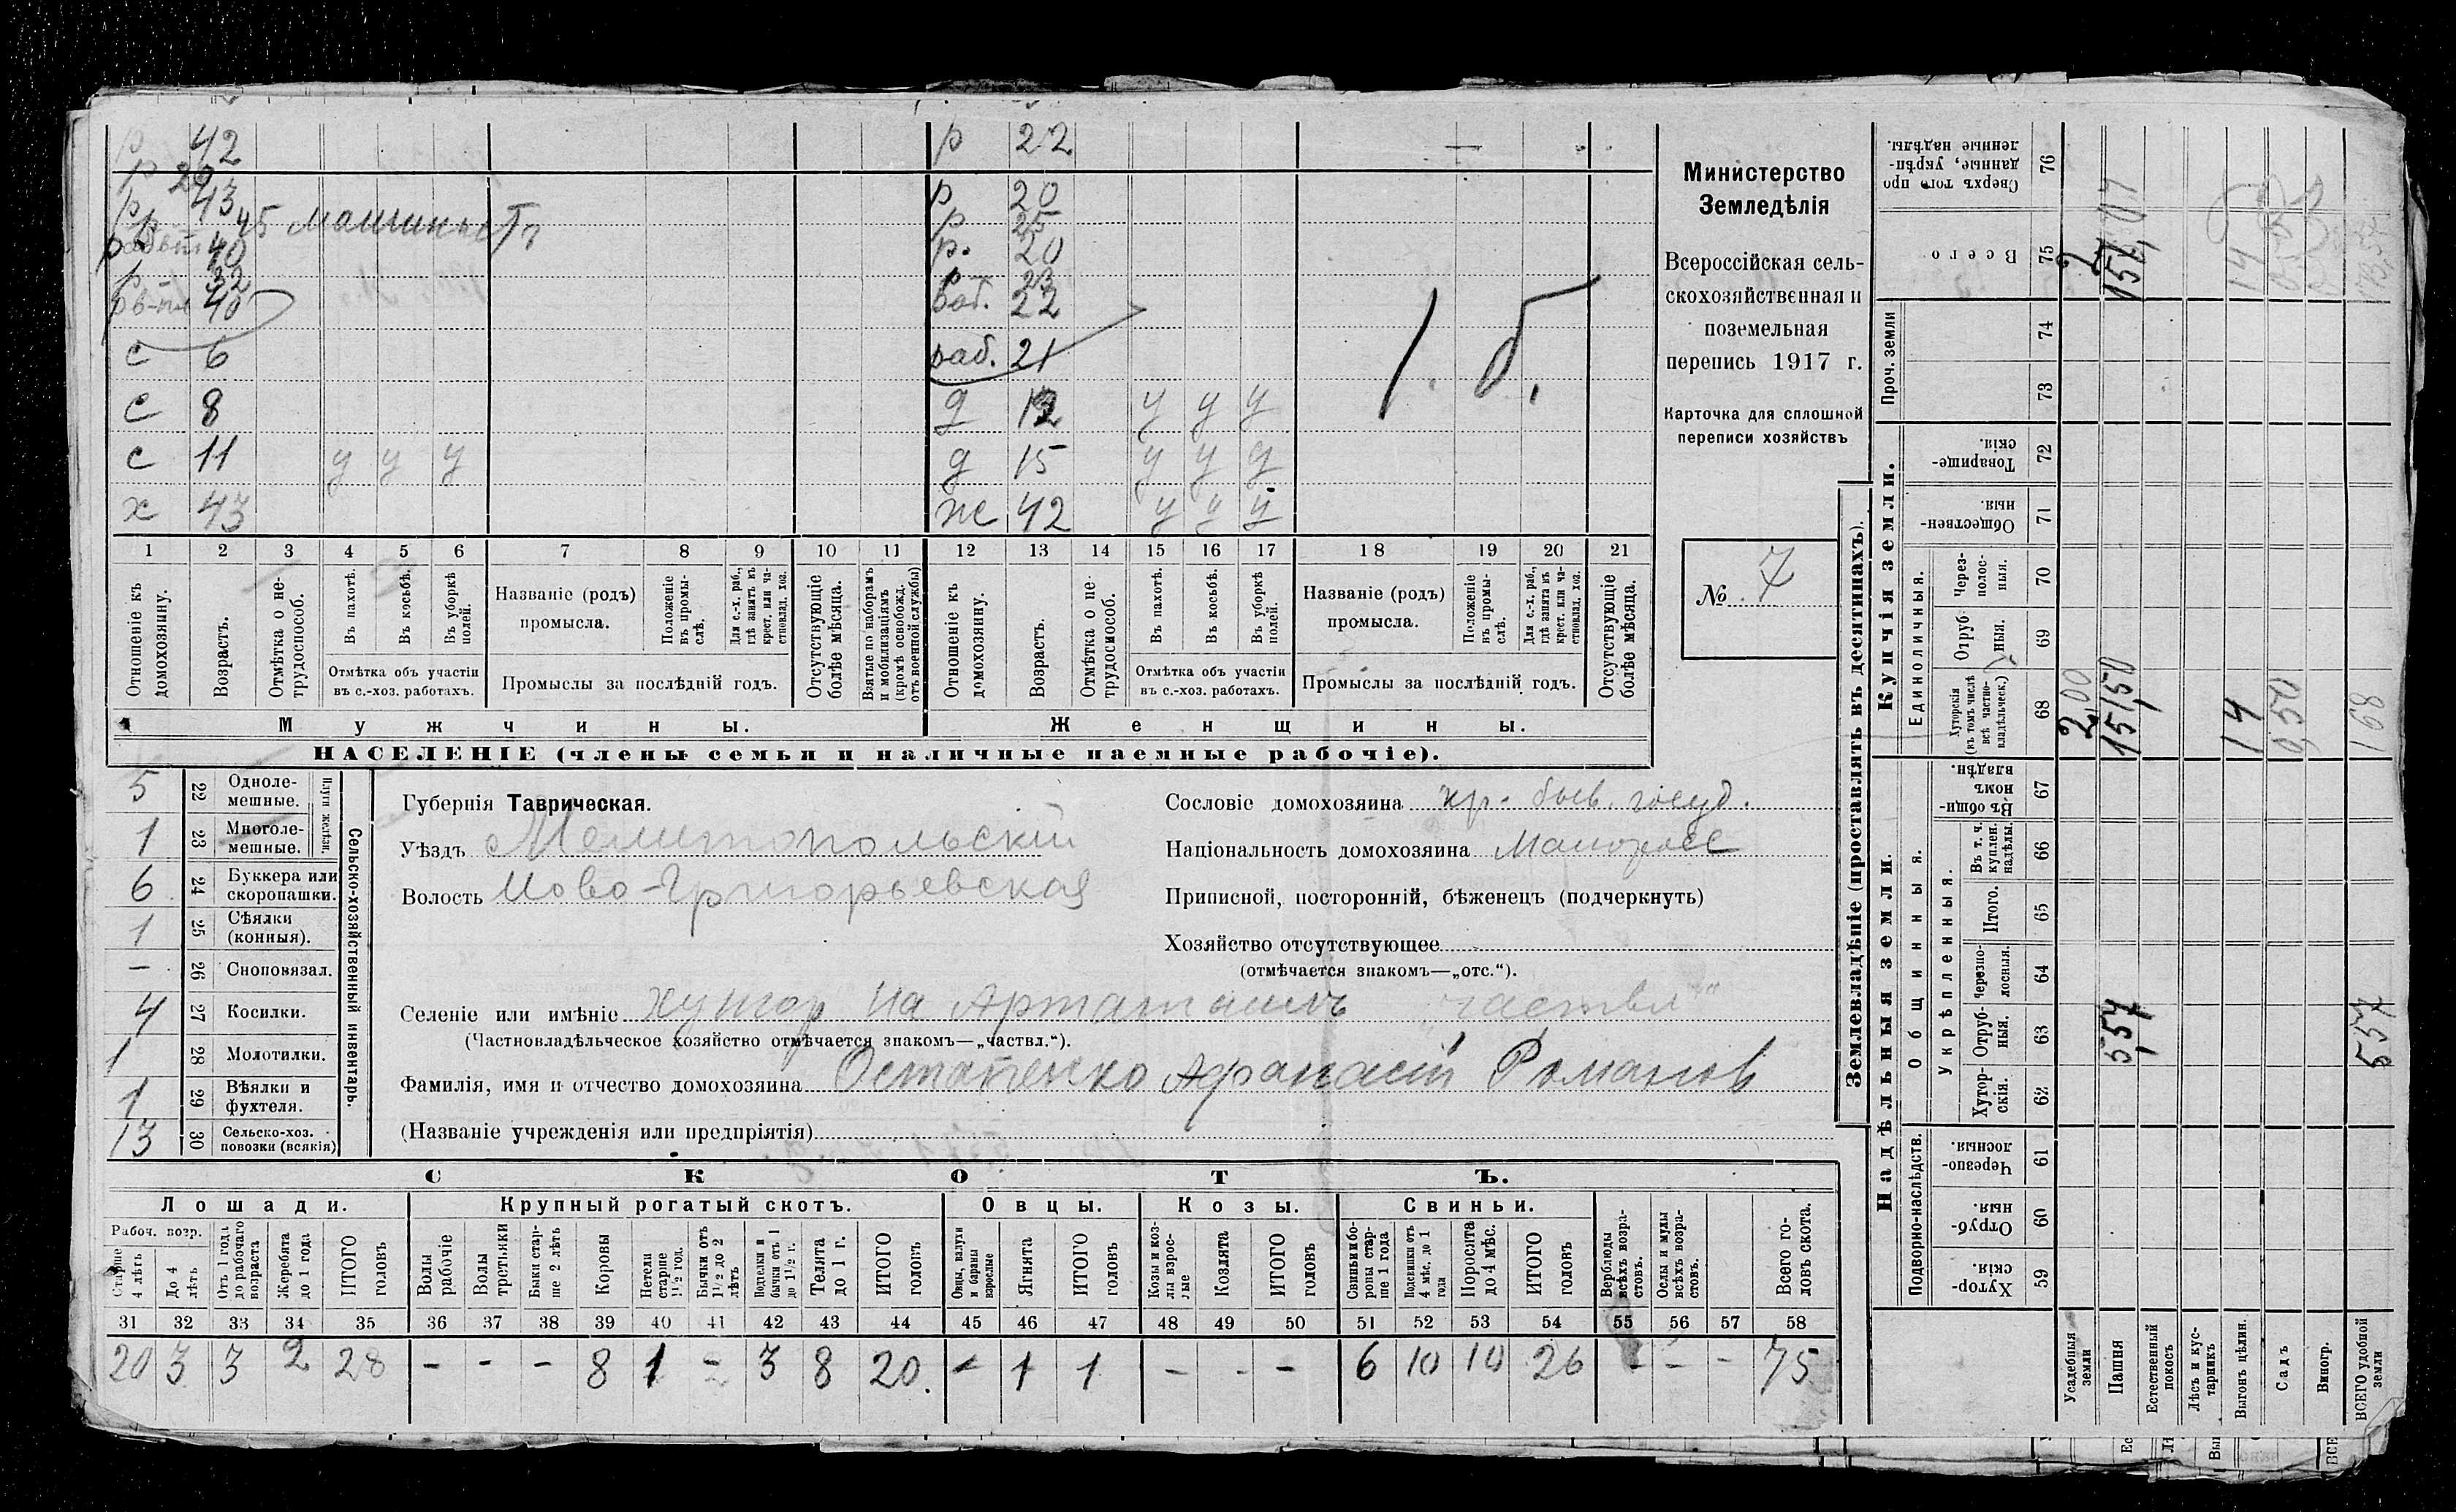 р 42 р 22
р 29
р 43 р 20
р 45 машинист р 25
40 р. 20
р 32 р 23
40 раб. 22
с 6 раб. 21
с 8 д 12 у у у
с 11 у у у д 15 у у у
х 43 ж 42 у у у
1 2 3 4 5 6 7 8 9 10 11 12 13 14 15 16 17 18 19 20 21
Отношеніе къ домохозяину.
Возрастъ.
Отмѣтка о нетрудоспособ.
Въ пахотѣ.
Въ косьбѣ.
Въ уборкѣ полей.
Отмѣтка объ участіи въ с.-хоз. работахъ.
Названіе (родъ) промысла.
Положеніе въ промыслѣ.
Для с.-х. раб., гдѣ занятъ въ крест. или частновлад. хоз.
Промыслы за послѣдній годъ.
Отсутствующіе болѣе мѣсяца.
Взятые по наборамъ и мобилизаціямъ (кромѣ освобожд. отъ военной службы)
Отношеніе къ домохозяину.
Возрастъ.
Отмѣтка о нетрудоспособ.
Въ пахотѣ.
Въ косьбѣ.
Въ уборкѣ полей.
Отмѣтка объ участіи въ с.-хоз. работахъ.
Названіе (родъ) промысла.
Положеніе въ промыслѣ.
Для с.-х. раб., гдѣ занята въ крест. или частновлад. хоз.
Промыслы за послѣдній годъ.
Отсутствующіе болѣе мѣсяца.
Мужчины. Женщины.
НАСЕЛЕНІЕ (члены семьи и наличные наемные рабочіе).
Министерство
Земледѣлія
Всероссійская сель-
скохозяйственная и
поземельная
перепись 1917 г.
Карточка для сплошной
переписи хозяйствъ
№ 7
Сельско-хозяйственный инвентарь.
Плуги желѣзн.
5 22 Одноле-
мешные.
1 23 Многоле-
мешные.
6 24 Буккера или
скоропашки.
1 25 Сѣялки
(конныя).
– 26 Сноповязал.
4 27 Косилки.
1 28 Молотилки.
1 29 Вѣялки и
фухтеля.
13 30 Сельско-хоз.
повозки (всякія)
Губернія Таврическая.
Уѣздъ Мелитопольскій
Волость Ново-Григорьевская
Сословіе домохозяина кр. быв. госуд.
Національность домохозяина Малоросс
Приписной, посторонній, бѣженецъ (подчеркнуть)
Хозяйство отсутствующее
(отмѣчается знакомъ—„отс.“).
Селеніе или имѣніе хутор на „частвл“
(Частновладѣльческое хозяйство отмѣчается знакомъ—„частвл.“).
Фамилія, имя и отчество домохозяина Остапенко Афанасій Романов
(Названіе учрежденія или предпріятія)
СКОТЪ.
Лошади. Крупный рогатый скотъ. Овцы. Козы. Свиньи.
Рабоч. возр.
Старше 4 лѣтъ
До 4 лѣтъ
Отъ 1 года до рабочаго возраста
Жеребята до 1 года
ИТОГО головъ
Волы рабочіе
Волы третьяки
Быки старше 2 лѣтъ
Коровы
Нетели старше 1½ год.
Бычки отъ 1½ до 2 лѣтъ
Подтелки и бычки отъ 1 до 1½ г.
Телята до 1 г.
ИТОГО головъ
Овцы, валухи и бараны взрослые
Ягнята
ИТОГО головъ
Козы и козлы взрослые
Козлята
ИТОГО головъ
Свиньи и боровы старше 1 года
Подсвинки отъ 4 мѣс. до 1 года
Поросята до 4 мѣс.
ИТОГО головъ
Верблюды всѣхъ возрастовъ.
Ослы и мулы всѣхъ возрастовъ.
Всего головъ скота.
31 32 33 34 35 36 37 38 39 40 41 42 43 44 45 46 47 48 49 50 51 52 53 54 55 56 57 58
20 3 3 2 28 – – – 8 1 – 3 8 20. – 1 1 – - – 6 10 10 26 – – – 75
Землевладѣніе (проставлять въ десятинахъ).
Купчія земли.
Надѣльныя земли.
Сверхъ того проданные, укрѣпленные надѣлы. 76
Всего 75 2 157,07
Проч. земли 74 73
Товарищескія. 72
Общественныя. 71
Единоличныя.
Черезполосныя. 70
Отрубныя. 69
Хуторскія (въ томъ числѣ всѣ частновладѣльческ.) 68 2,00 151,50 14 0,50 168
Общинныя.
Въ общинномъ владѣн. 67
Укрѣпленныя.
Въ т. ч. куплен. надѣлы. 66
Итого. 65
Черезполосныя. 64
Отрубныя. 63 5,57 557
Хуторскія. 62
Подворно-наслѣдств.
Черезполосныя. 61
Отрубныя. 60
Хуторскія. 59
Усадебныя земли
Пашня
Естественный покосъ
Лѣсъ и кустарникъ
Выгонъ цѣлин.
Садъ
Виногр.
ВСЕГО удобной земли